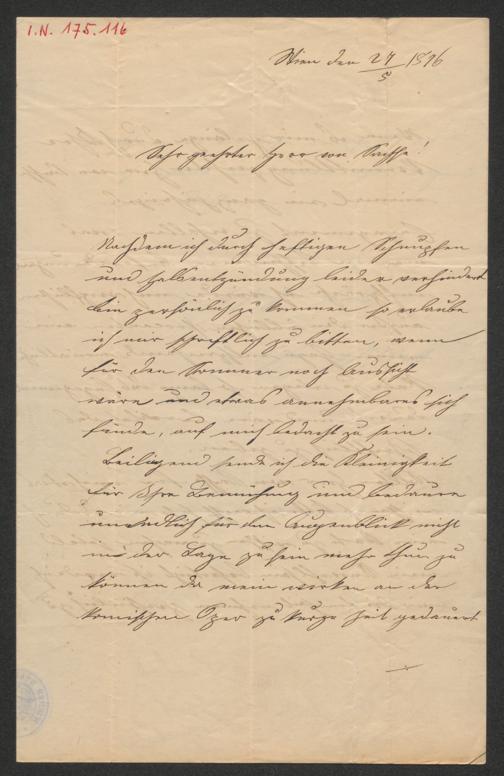 I.N. 175.116
Wien den 24/5 1896
Sehr geehrter Herr von Sachse!
Nachdem ich durch heftigen Schnupfen
und Halsentzündung leider verhindert
bin persönlich zu kommen so erlaube
ich mir schriftlich zu bitten, wenn
für den Sommer noch Aussicht
wäre und etwas annehmbares sich
fände, auf mich bedacht zu sein.
Beiliegend sende ich die Kleinigkeit
für Ihre Bemühung und bedaure
unendlich für den Augenblick nicht
in der Lage zu sein mehr thun zu
können da mein wirken an der
komischen Oper zu kurze Zeit gedauert